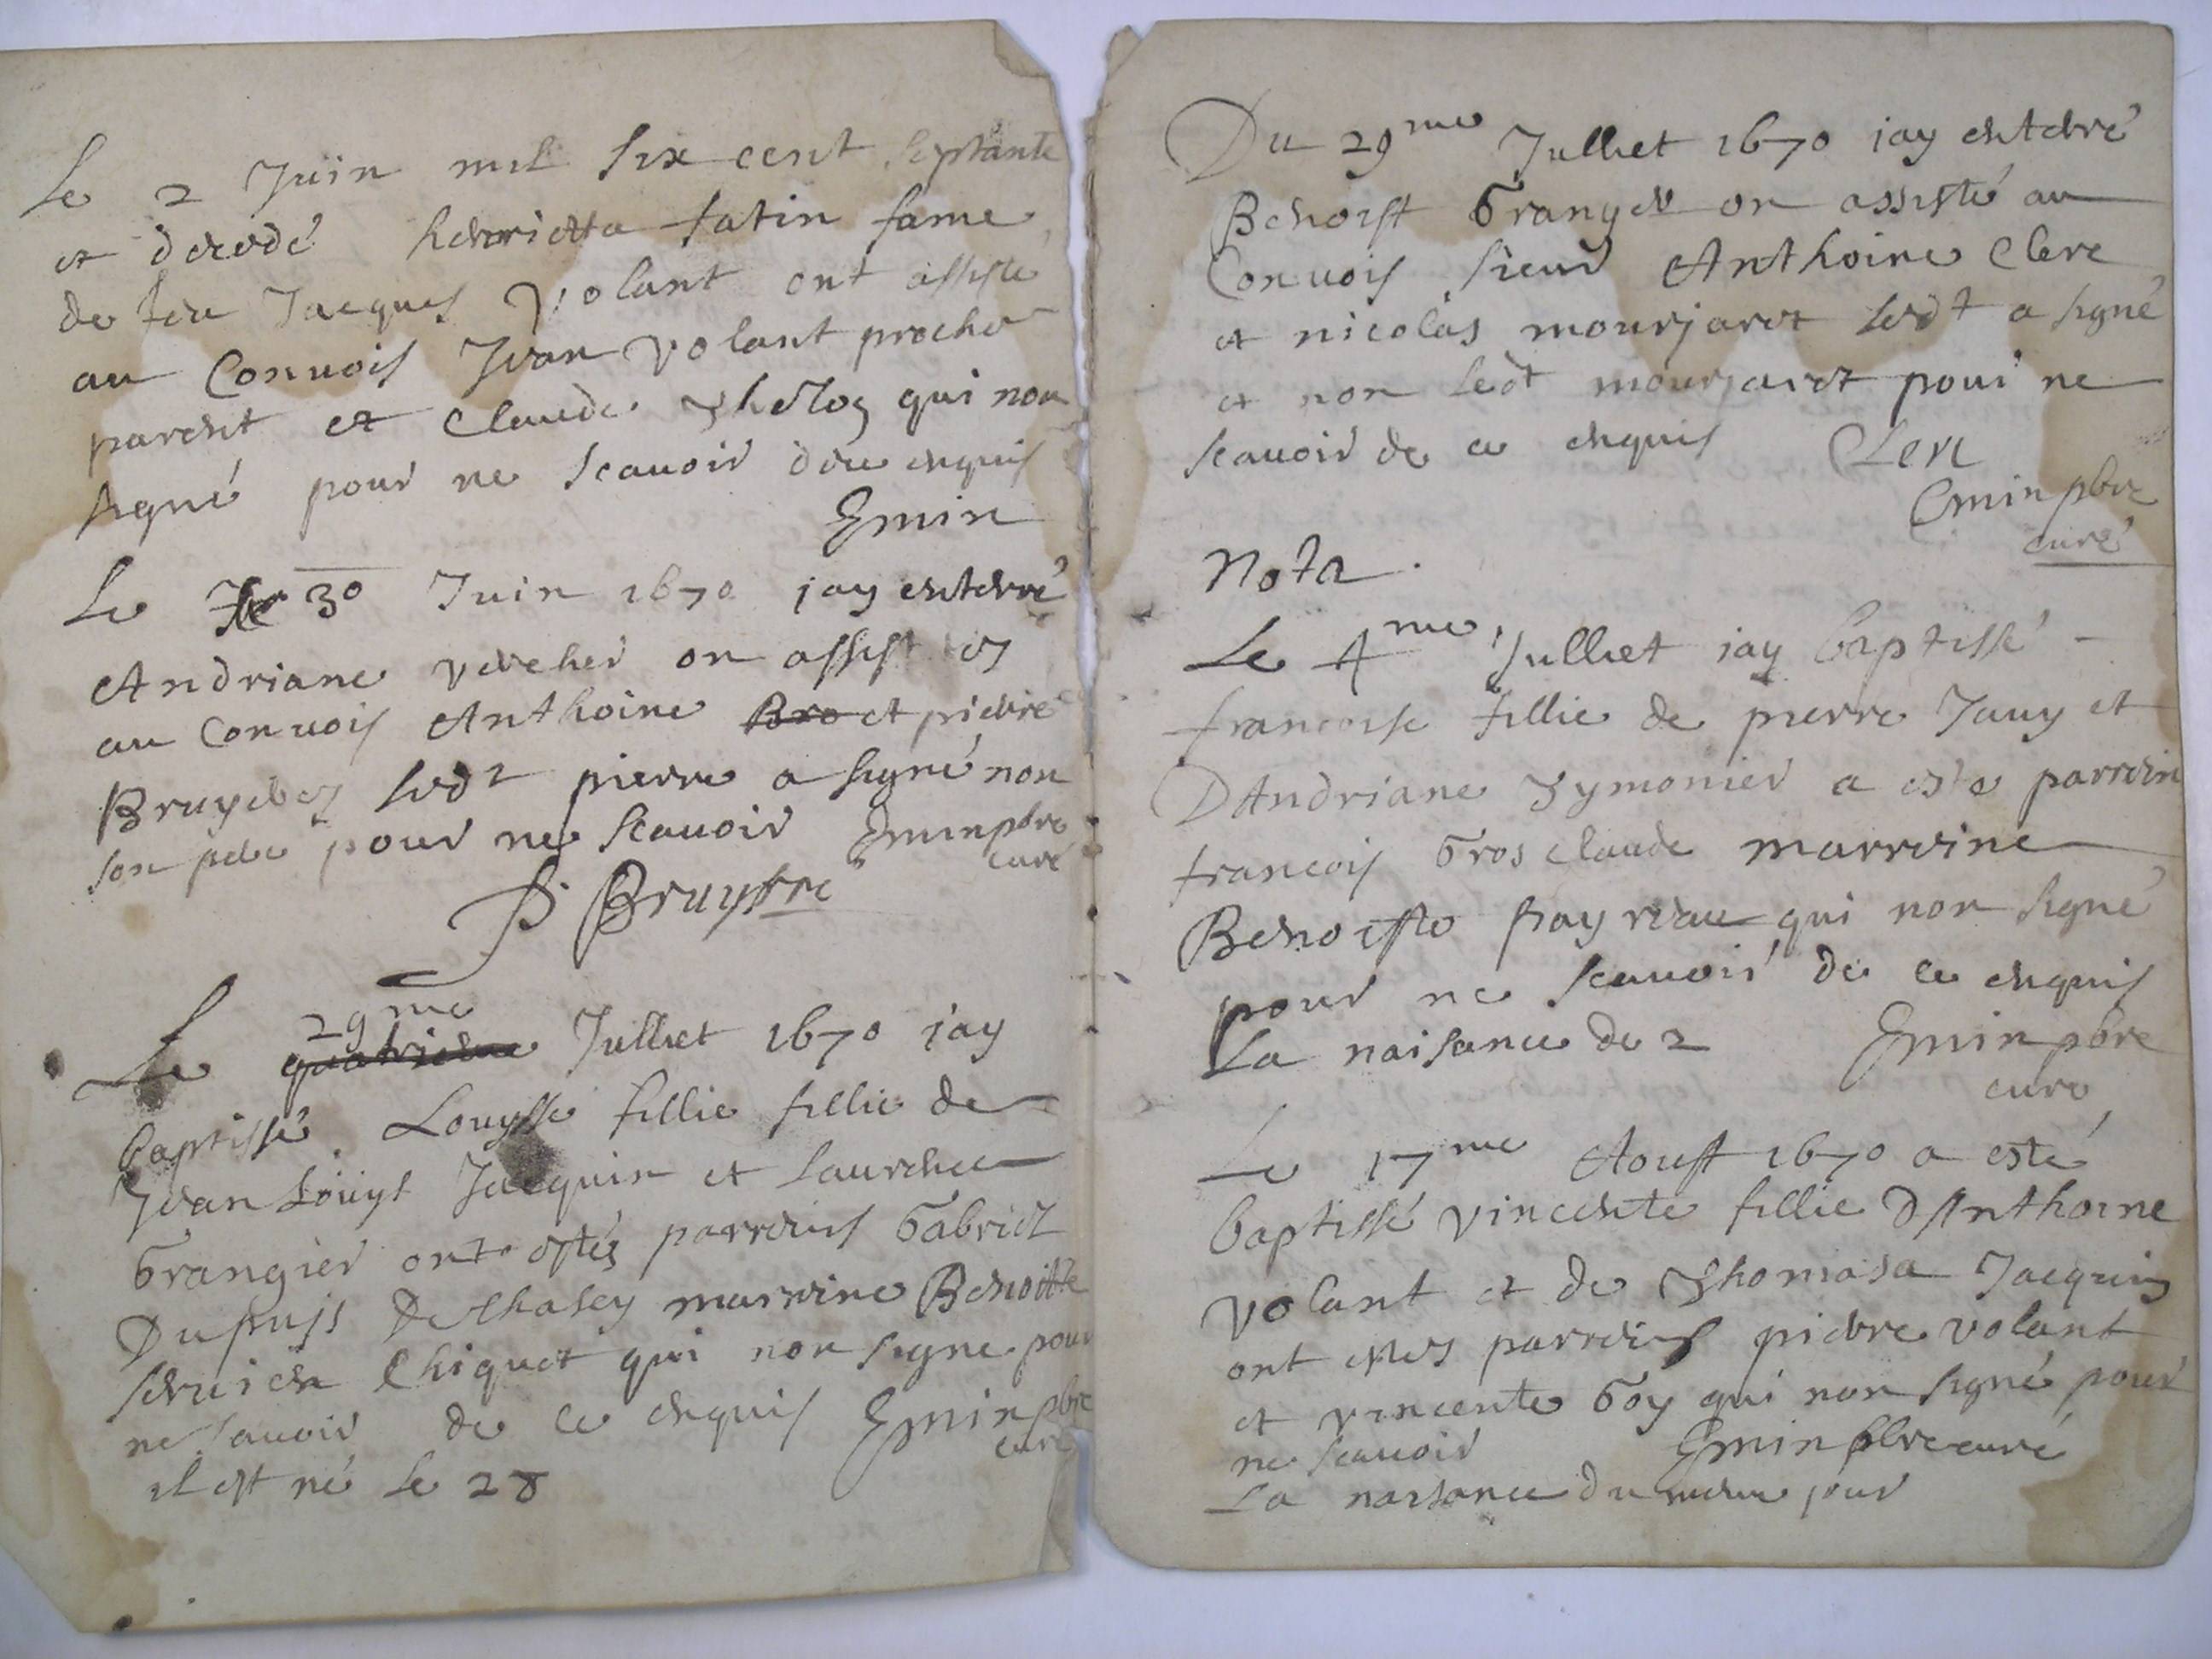 Le 2 Juin mil six cent septante
et decedé henrietta fatin fame
de feu Jacques volant ont assisté
au Convois Jean volant proche
parent et Claude qui non
signé pour ne scavoir de ce enquis
Emin
Le 30 Juin 1670 jay enterré
Andriane vercher on assistes
au Convois Anthoine Bro et pierre
Bruyeres ledt pierre a signé non
son pere pour ne scavoir Emin pbre
curé
P. Bruyere
29me
Le quatrieme Julliet 1670 jay
baptissé Louysse fillie fillie de
Jean Louys Jacquin et laurence
Grangier ont estés parreins Gabriel
Dupuys De Chasey marreine Benoitte
Chiquet qui non signe pour
ne savoir de ce enquis Emin pbre
curé
il est né le 28
Du 29me Julliet 1670 jay enterré
Benoist Granger on assisté au
Convois sieur Anthoine Clerc
et nicolas mourjaret ledt a signé
et non ledt mourjaret pour ne
scavoir de ce enquis Clerc
Emin pbre
curé
Nota.
Le 4me Julliet jay baptissé
francoise fillie de pierre Jany et
DAndriane Symonier a este parrein
francois Gros claude marreine
Benoiste payreau qui non signé
pour ne scavoir de ce enquis
La naisance de 2 Emin pbre
curé
Le 17me Aoust 1670 a esté
baptissé vincente fillie DAnthoine
volant et de Thomasa Jacquin
ont estes parreins pierre volant
et vincente Goy qui non signé pour
ne scavoir Emin pbre curé
La naisance du meme jour